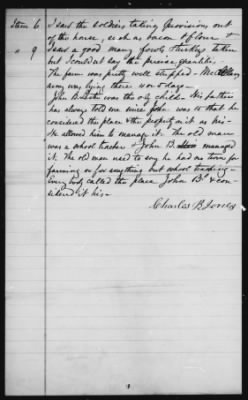 Item 6 I saw the soldiers taking provisions out
of the house, such as bacon & flour &
" 9 I saw a good many fowls & turkeys taken
but I could not say the precise quantities.
The farm was pretty well stripped. McClellan's
army was lying there 10 or days.
John B. was the only child. His father
has always told me since John was 10 that he
considered the place & the property on it as his
He allowed him to manage it. The old man
was a school teacher & John B. managed
it. The old man used to say he had no turn for
farming or for anything but school teaching.
Every body called the place John B's & con-
sidered it his.
Charles B. Jones